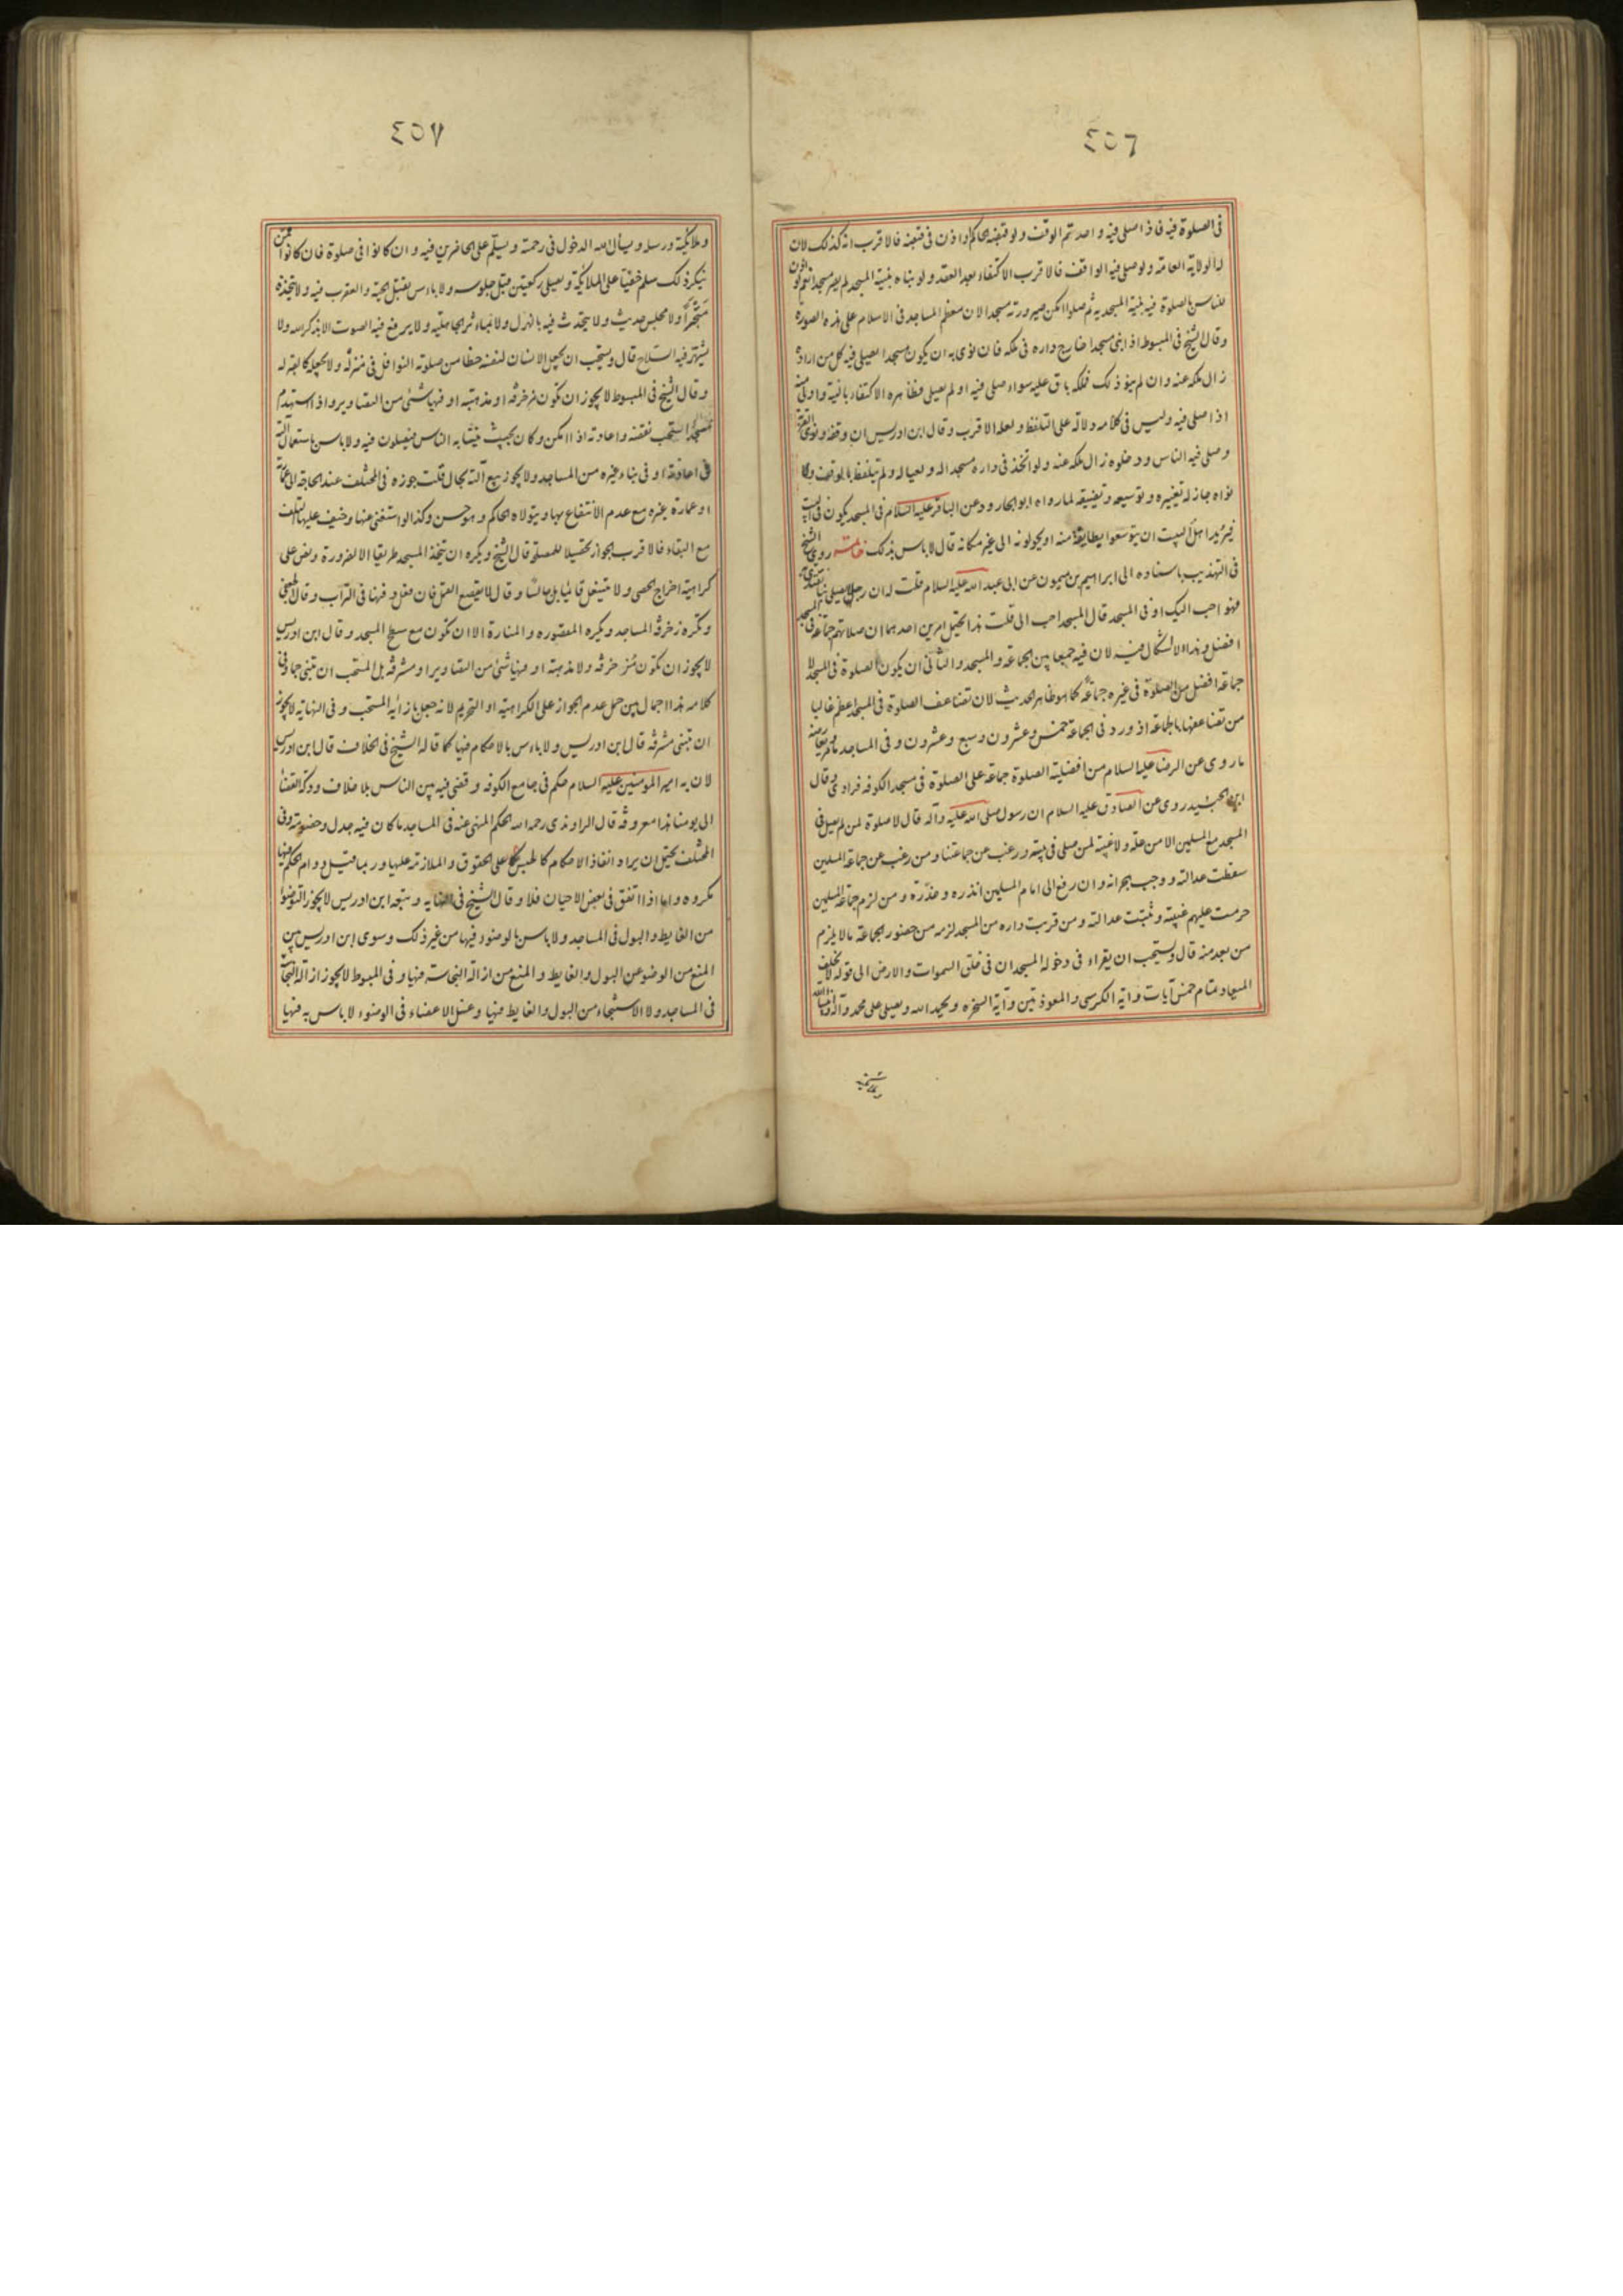 ٤٥٦
فى الصلوة فيه فاذا صلى فيه واحد تم الوقف ولو قبضه الحاكم او اذن فى قبضه فالاقرب انه كذلك لان
له الولاية العامة ولو صلى فيه الواقف فالاقرب الاكتفاء بعد العقد ولو بناه بنية المسجد لم يصر مسجدا نعم لو اذن
للناس بالصلوة فيه بنية المسجدية ثم صلوا امكن صيرورته مسجدا لان معظم المساجد فى الاسلام على هذه الصورة
وقال الشيخ فى المبسوط اذا بنى مسجدا خارج داره فى ملكه فان نوى به ان يكون مسجدا يصلى فيه كل من اراده
زال ملكه عنه وان لم ينو ذلك فملكه باق عليه سواء صلى فيه او لم يصل فظاهره الاكتفاء بالنية واولى منه
اذا صلى فيه وليس فى كلامه دلالة على التلفظ ولعله الاقرب وقال ابن ادريس ان وقفه ونوى القربة
وصلى فيه الناس ودخلوه زال ملكه عنه ولو اتخذ فى داره مسجدا له ولعياله ولم يتلفظ بالوقف ولا
نواه جاز له تغييره وتوسيعه وتضييقه لما رواه ابو الجارود عن الباقر عليه السلام فى المسجد يكون فى البيت
فيريد اهل البيت ان يتوسعوا بطايفة منه او يحولونه الى غير مكانه قال لا باس بذلك خاتمة روى الشيخ
فى التهذيب باسناده الى ابراهيم بن ميمون عن ابى عبد الله عليه السلام قلت له ان رجلا يصلى بنا نقتدى به
فهو احب اليك او فى المسجد قال المسجد احب الى قلت هذا يحتمل امرين احدهما ان صلاتهم جماعة فى المسجد
افضل وهذا لا اشكال فيه لان فيه جمعا بين الجماعة والمسجد والثانى ان يكون الصلوة فى المسجد لا
جماعة افضل من الصلوة فى غيره جماعة كما هو ظاهر الحديث لان تضاعف الصلوة فى المسجد اعظم غالبا
من تضاعفها بالجماعة اذ ورد فى الجماعة خمس وعشرون وسبع وعشرون وفى المساجد ما مر ويعارضه
ما روى عن الرضا عليه السلام من افضلية الصلوة جماعة على الصلوة فى مسجد الكوفه فرادى وقال
ابن الجنيد روى عن الصادق عليه السلام ان رسول صلى الله عليه وآله قال لا صلوة لمن لم يصل فى
المسجد مع المسلمين الا من علة ولا غيبة لمن صلى فى بيته ورغب عن جماعتنا ومن رغب عن جماعة المسلمين
سقطت عدالته ووجب هجرانه وان رفع الى امام المسلمين انذره وحذره ومن لزم جماعة المسلمين
حرمت عليهم غيبته وثبتت عدالته ومن قربت داره من المسجد لزمه من حضور الجماعة ما لا يلزم
من بعد منه قال ويستحب ان يقراء فى دخوله المسجد ان فى خلق السموات والارض الى قوله لا تخلف
الميعاد تمام خمس آيات وآية الكرسى والمعوذتين وآية السخره ويحمد الله ويصلى على محمد وآله وانبياء الله
٤٥٧
وملائكته ورسله ويسأل الله الدخول فى رحمته ويسلم على الحاضرين فيه وان كانوا فى صلوة فان كانوا ممن
ينكر ذلك سلم خفيا على الملائكة ويصلى ركعتين قبل جلوسه ولا باس بقتل الحية والعقرب فيه ولا يتخذه
متجرا ولا مجلس حديث ولا يتحدث فيه بالهزل ولا بمآثر الجاهلية ولا يرفع فيه الصوت الا بذكر الله ولا
يشهر فيه السلاح قال ويستحب ان يجعل الانسان لنفسه حظا من صلوته النوافل فى منزله ولا يجعله كالقبر له
وقال الشيخ فى المبسوط لا يجوز ان تكون مزخرفة او مذهبة او فيها شئ من التصاوير واذا استهدم
مسجد استحب نقضه واعادته اذا امكن وكان بحيث ينتابه الناس فيصلون فيه ولا باس باستعمال آلته
فى اعادته او فى بناء غيره من المساجد ولا يجوز بيع آلته بحال قلت جوزه فى المختلف عند الحاجة الى عمارته
او عمارة غيره مع عدم الانتفاع بها ويتولاه الحاكم وهو حسن وكذا لو استغنى عنها وخيف عليها التلف
مع البقاء فالاقرب الجواز تحصيلا للمصلحة قال الشيخ ويكره ان يتخذ المسجد طريقا الا لضرورة ونص على
كراهية اخراج الحصى ولا ينتعل قائما بل جالسا وقال لا يقصع القمل فان فعل دفنها فى التراب وقال الجعفى
وتكره زخرفة المساجد ويكره المقصوره والمنارة الا ان تكون مع سطح المسجد وقال ابن ادريس
لا يجوز ان تكون مزخرفة ولا مذهبة او فيها شئ من التصاوير او مشرفة بل المستحب ان تبنى جما وفى
كلامه هذا اجمال بين حمل عدم الجواز على الكراهية او التحريم لانه جعل بازائه المستحب وفى النهاية لا يجوز
ان تبنى مشرفة قال ابن ادريس ولا باس بالاحكام فيها كما قاله الشيخ فى الخلاف قال ابن ادريس
لان به امير المومنين عليه السلام حكم فى جامع الكوفه وقضى فيه بين الناس بلا خلاف ودكة القضاء
الى يومنا هذا معروفة قال الراوندى رحمه الله الحكم المنهى عنه فى المساجد ما كان فيه جدل وخصومة وفى
المختلف يحتمل ان يراد انفاذ الاحكام كالحبس على الحقوق والملازمة عليها وربما قيل دوام الحكم فيها
مكروه واما اذا اتفق فى بعض الاحيان فلا وقال الشيخ فى النهايه وتبعه ابن ادريس لا يجوز التوضوء
من الغايط والبول فى المساجد ولا باس بالوضوء فيها من غير ذلك وسوى ابن ادريس بين
المنع من الوضوء عن البول والغايط والمنع من ازالة النجاسة فيها وفى المبسوط لا يجوز ازالة النجاسة
فى المساجد ولا الاستنجاء من البول والغايط فيها وغسل الاعضاء فى الوضوء لا باس به فيها